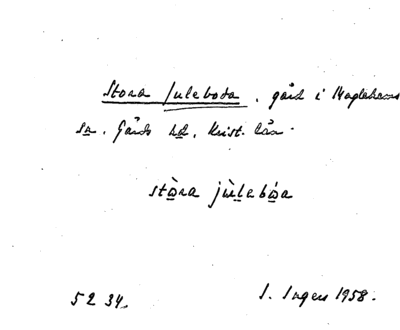 Stora Juleboda, gård i Maglehems
sn. Gärds hd, Krist. län.
stòra jùlebóa
5234. I. Ingers 1958.